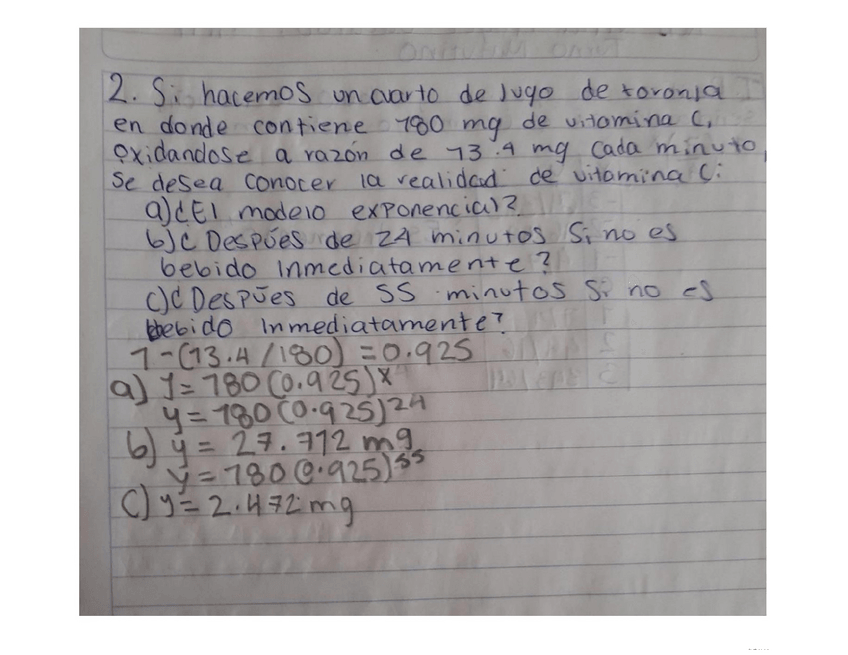 2. Si hacemos un cuarto de jugo de toronja
en donde contiene 180 mg de vitamina C,
oxidandose a razón de 13.4 mg cada minuto,
se desea conocer la realidad de vitamina C:
a)¿El modelo exponencial?
b)¿Despúes de 24 minutos Si no es
bebido inmediatamente?
c)¿Despúes de 55 minutos Si no es
bebido inmediatamente?
1-(13.4/180) = 0.925
a) y=180(0.925)x
y=180(0.925)24
b) y = 27.712 mg
y=180(0.925)55
C) y=2.472 mg